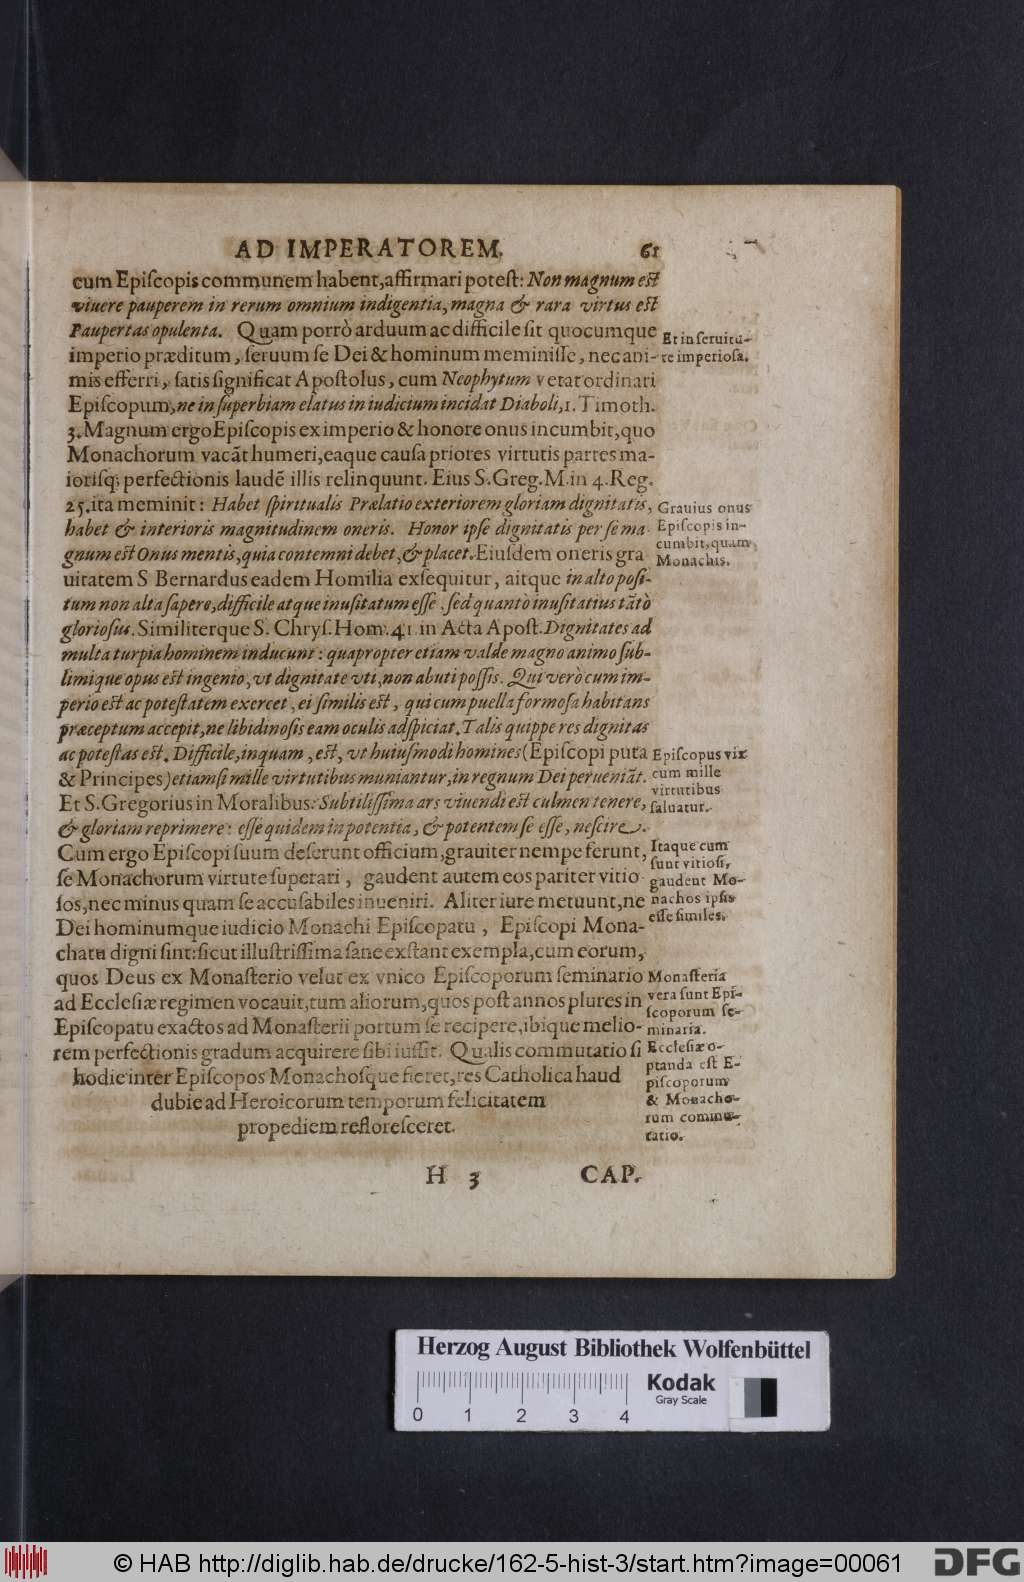 AD IMPERATOREM. 61
cum Epiſcopis communem habent, affirmari poteſt: Non magnum eſt
viuere pauperem in rerum omnium indigentia, magna & rara virtus eſt
Paupertas opulenta. Quam porrò arduum ac difficile ſit quocumque
imperio præditum, ſeruum ſe Dei & hominum meminiſſe, nec ani-
mis efferri, ſatis ſignificat Apoſtolus, cum Neophytum vetat ordinari
Epiſcopum, ne in ſuperbiam elatus in iudicium incidat Diaboli, 1. Timoth.
3. Magnum ergo Epiſcopis ex imperio & honore onus incumbit, quo
Monachorum vacãt humeri, eaque cauſa priores virtutis partes ma-
ioriſq; perfectionis laudẽ illis relinquunt. Eius S. Greg. M. in 4. Reg.
25. ita meminit: Habet ſpiritualis Prælatio exteriorem gloriam dignitatis,
habet & interioris magnitudinem oneris. Honor ipſe dignitatis per ſe ma-
gnum eſt Onus mentis, quia contemni debet, & placet. Eiuſdem oneris gra
uitatem S Bernardus eadem Homilia exſequitur, aitque in alto poſi-
tum non alta ſapere, difficile atque inuſitatum eſſe, ſed quantò inuſitatius tãtò
glorioſius. Similiterque S. Chryſ. Hom. 41 in Acta Apoſt. Dignitates ad
multa turpia hominem inducunt: quapropter etiam valde magno animo ſub-
limique opus eſt ingenio, vt dignitate vti, non abuti poſſis. Qui verò cum im-
perio eſt ac poteſtatem exercet, ei ſimilis eſt, qui cum puella formoſa habitans
præceptum accepit, ne libidinoſis eam oculis adſpiciat. Talis quippe res dignitas
ac poteſtas eſt. Difficile, inquam, eſt, vt huiuſmodi homines (Epiſcopi puta
& Principes) etiamſi mille virtutibus muniantur, in regnum Dei perueniãt.
Et S. Gregorius in Moralibus: Subtiliſſima ars viuendi eſt culmen tenere,
& gloriam reprimere: eſſe quidem in potentia, & potentem ſe eſſe, neſcire.
Cum ergo Epiſcopi ſuum deſerunt officium, grauiter nempe ferunt,
ſe Monachorum virtute ſuperari, gaudent autem eos pariter vitio
ſos, nec minus quam ſe accuſabiles inueniri. Aliter iure metuunt, ne
Dei hominumque iudicio Monachi Epiſcopatu, Epiſcopi Mona-
chatu digni ſint: ſicut illuſtriſſima ſane exſtant exempla, cum eorum,
quos Deus ex Monaſterio velut ex vnico Epiſcoporum ſeminario
ad Eccleſiæ regimen vocauit, tum aliorum, quos poſt annos plures in
Epiſcopatu exactos ad Monaſterii portum ſe recipere, ibique melio-
rem perfectionis gradum acquirere ſibi iuſſit. Qualis commutatio ſi
hodie inter Epiſcopos Monachoſque fieret, res Catholica haud
dubie ad Heroicorum temporum felicitatem
propediem refloreſceret.
H 3 CAP.
Et in ſeruitu-
te imperioſa.
Grauius onus
Epiſcopis in-
cumbit, quam
Monachis.
Epiſcopus vix
cum mille
virtutibus
ſaluatur.
Itaque cum
ſunt vitioſi,
gaudent Mo-
nachos ipſis
eſſe ſimiles.
Monaſteria
vera ſunt Epi-
ſcoporum ſe-
minaria.
Eccleſiæ o-
ptanda eſt E-
piſcoporum
& Monacho-
rum commu-
tatio.
Herzog August Bibliothek Wolfenbüttel
Kodak
Gray Scale
0 1 2 3 4
© HAB http://diglib.hab.de/drucke/162-5-hist-3/start.htm?image=00061
DFG